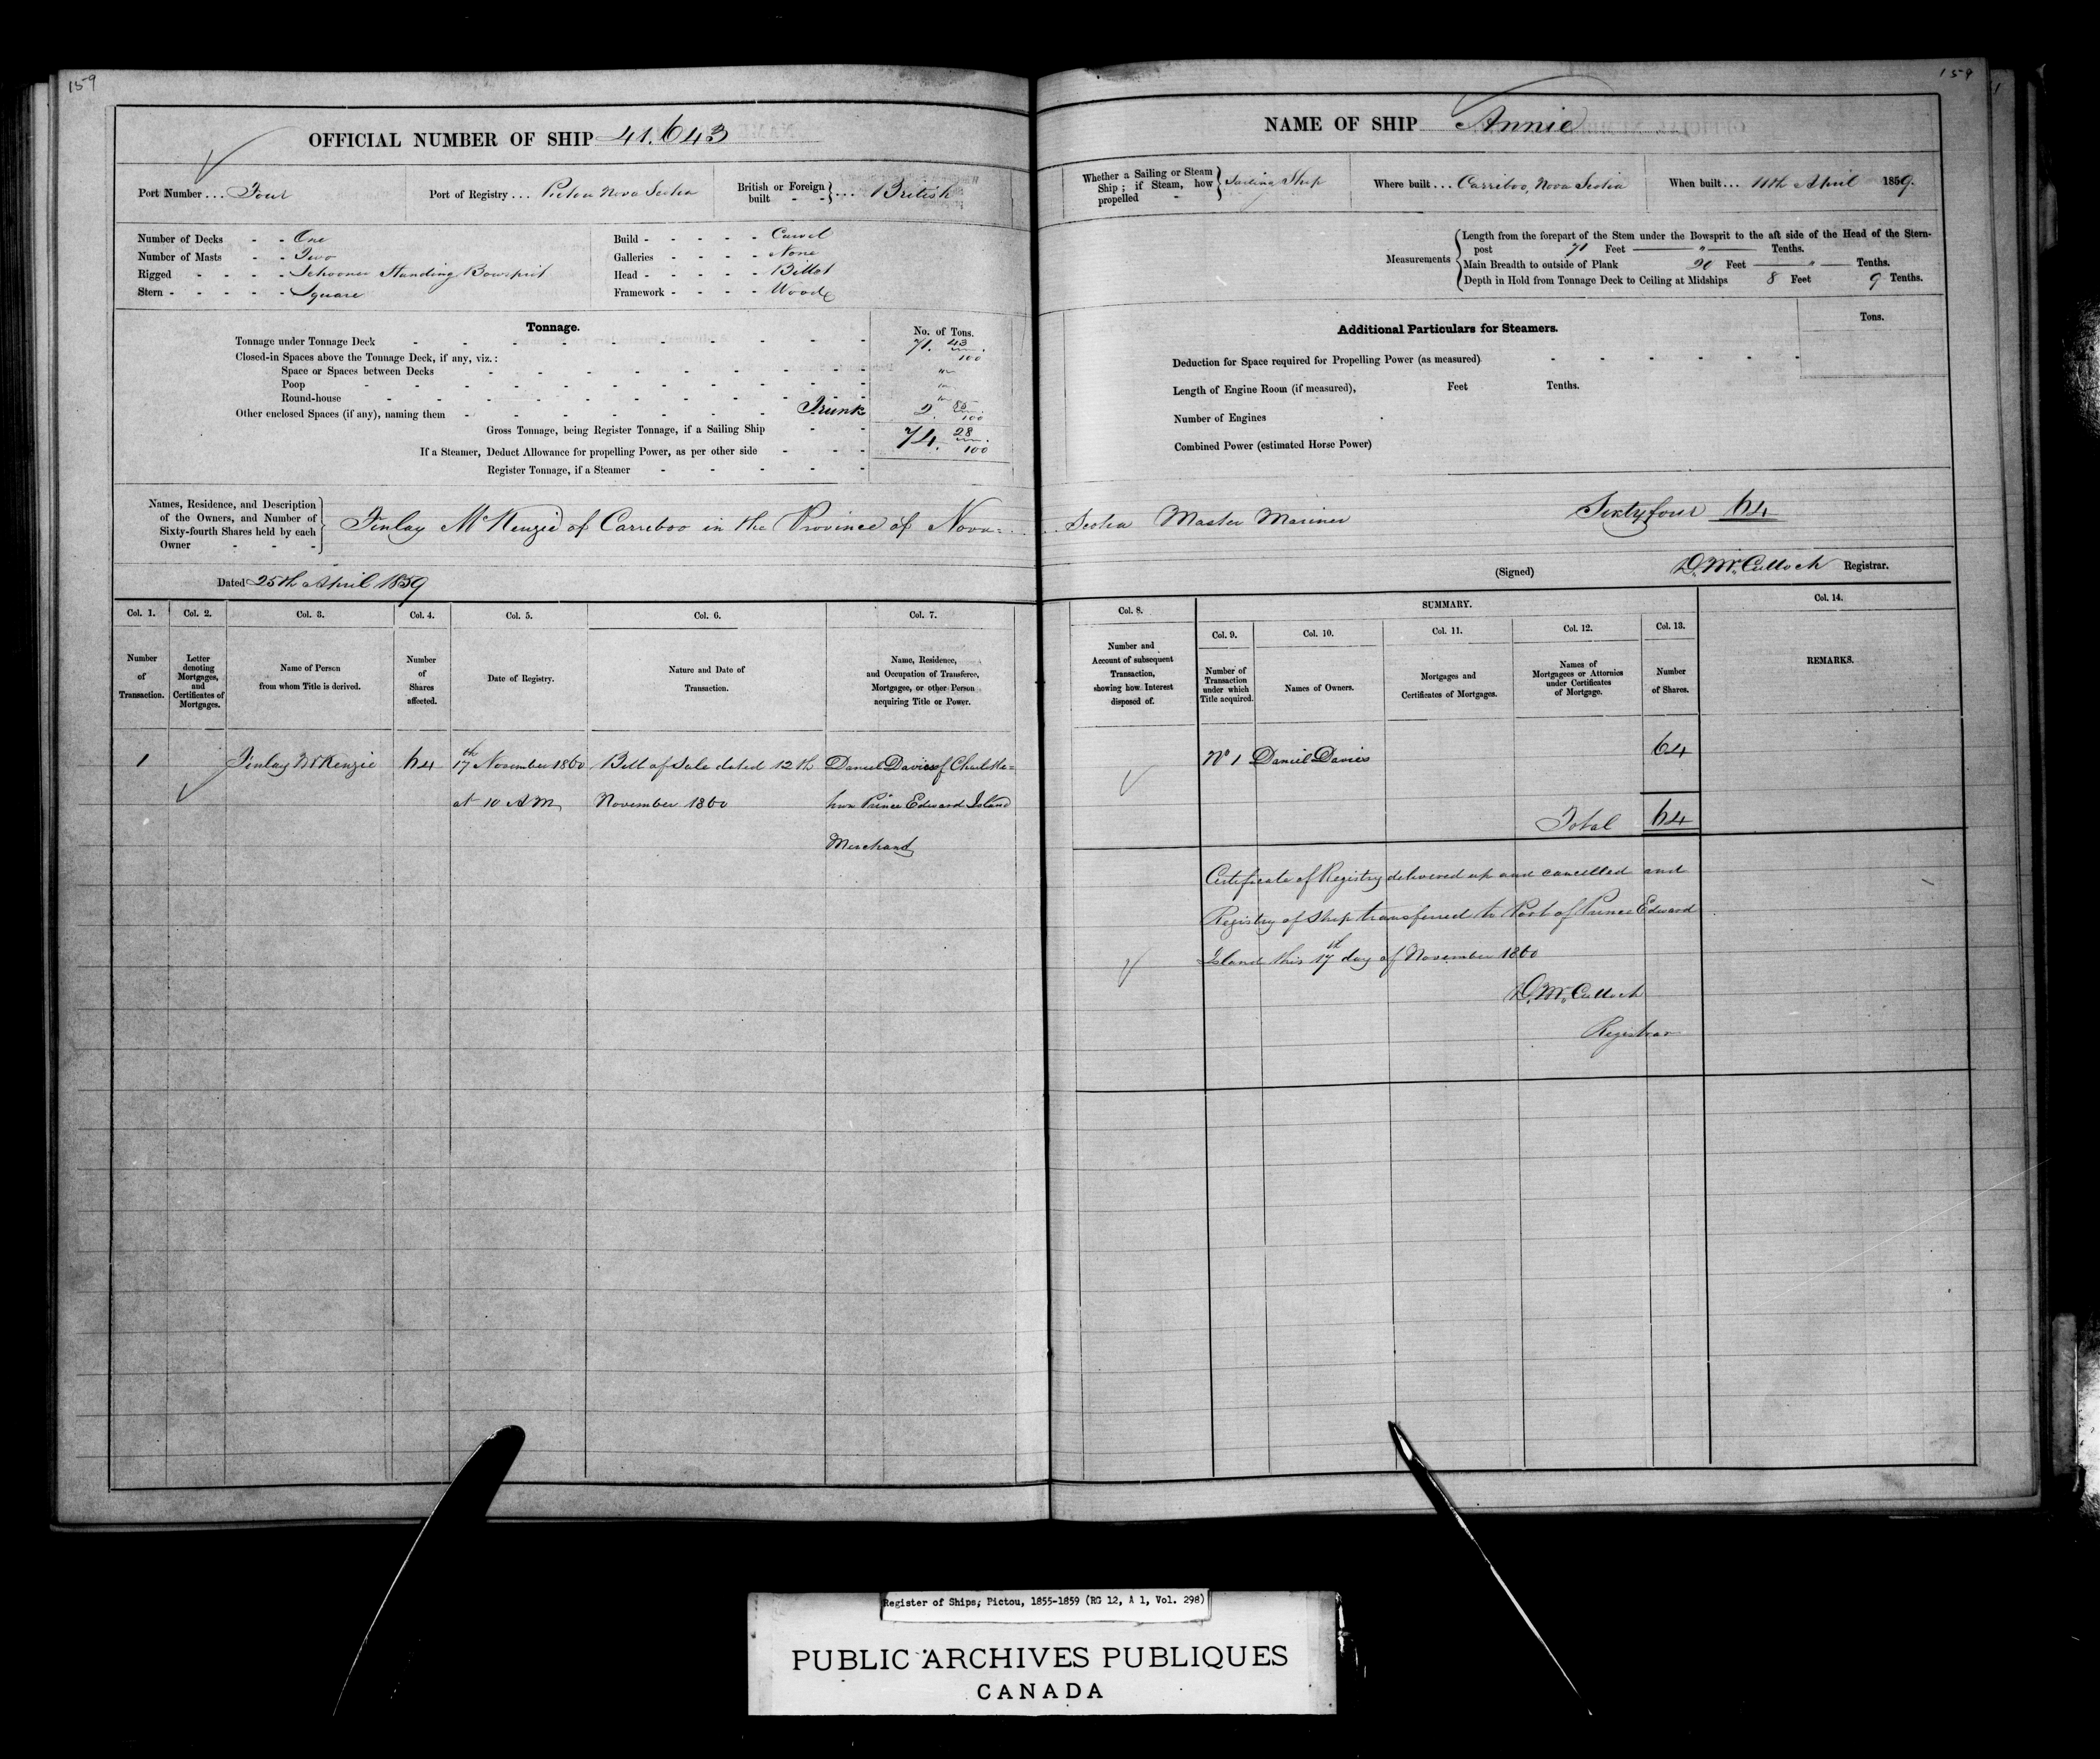 159
OFFICIAL NUMBER OF SHIP 41.643
Port Number ... Four
Port of Registry ... Pictou Nova Scotia
British or Foreign built - - } ... British
Number of Decks - - One
Number of Masts - - Two
Rigged - - - - Schooner Standing Bowsprit
Stern - - - - - Square
Build - - - - - Carvel
Galleries - - - - None
Head - - - - - Billet
Framework - - - - Wood
Tonnage.
No. of Tons.
Tonnage under Tonnage Deck - - - - - - - 71. 43/100
Closed-in Spaces above the Tonnage Deck, if any, viz.:
Space or Spaces between Decks - - - - - - - "
Poop - - - - - - - - - "
Round-house - - - - - - - - - "
Other enclosed Spaces (if any), naming them - - - - - - - Trunk 2. 85/100
Gross Tonnage, being Register Tonnage, if a Sailing Ship - - 74. 28/100
If a Steamer, Deduct Allowance for propelling Power, as per other side - - -
Register Tonnage, if a Steamer - - - - -
Names, Residence, and Description
of the Owners, and Number of
Sixty-fourth Shares held by each
Owner - - -
Finlay McKenzie of Carreboo in the Province of Nova-
Dated 25th April 1859
Col. 1. Col. 2. Col. 3. Col. 4. Col. 5. Col. 6. Col. 7.
Number of Transaction.
Letter denoting Mortgages, and Certificates of Mortgages.
Name of Person from whom Title is derived.
Number of Shares affected.
Date of Registry.
Nature and Date of Transaction.
Name, Residence, and Occupation of Transferee, Mortgagee, or other Person acquiring Title or Power.
1 Finlay McKenzie 64 17th November 1860 Bill of Sale dated 12th Daniel Davies of Charlotte=
at 10 A.M. November 1860 town Prince Edward Island
Merchant
159
NAME OF SHIP Annie
Whether a Sailing or Steam Ship; if Steam, how propelled - } Sailing Ship
Where built ... Carriboo, Nova Scotia
When built ... 11th April 1859.
Measurements
Length from the forepart of the Stem under the Bowsprit to the aft side of the Head of the Stern-
post 71 Feet " Tenths.
Main Breadth to outside of Plank 20 Feet " Tenths.
Depth in Hold from Tonnage Deck to Ceiling at Midships 8 Feet 9 Tenths.
Additional Particulars for Steamers.
Tons.
Deduction for Space required for Propelling Power (as measured) - - - - - -
Length of Engine Room (if measured), Feet Tenths.
Number of Engines
Combined Power (estimated Horse Power)
Scotia Master Mariner Sixty four 64
(Signed) D. McCulloch Registrar.
Col. 8. SUMMARY. Col. 14.
Col. 9. Col. 10. Col. 11. Col. 12. Col. 13.
Number and Account of subsequent Transaction, showing how Interest disposed of.
Number of Transaction under which Title acquired.
Names of Owners.
Mortgages and Certificates of Mortgages.
Names of Mortgagees or Attornies under Certificates of Mortgage.
Number of Shares.
REMARKS.
No 1 Daniel Davies 64
Total 64
Certificate of Registry delivered up and cancelled and
Registry of Ship transferred to Port of Prince Edward
Island this 17th day of November 1860
D. McCulloch
Registrar
Register of Ships; Pictou, 1855-1859 (RG 12, A 1, Vol. 298)
PUBLIC ARCHIVES PUBLIQUES
CANADA